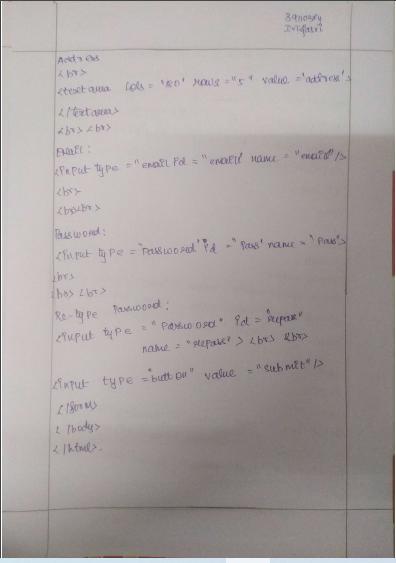 Address
<br>
<textarea cols = "80" rows = "5" value = "address">
</textarea>
<br> <br>
Email:
<input type = "email id = "email" name = "email"/>
<br>
<br><br>
Password:
<input type = "password" id = "Pass" name = "Pass">
<br>
<br> <br>
Re-type Password:
<input type = "Password" id = "repass"
name = "repass" > <br> <br>
<input type = "button" value = "submit"/>
</form>
</body>
</html>.